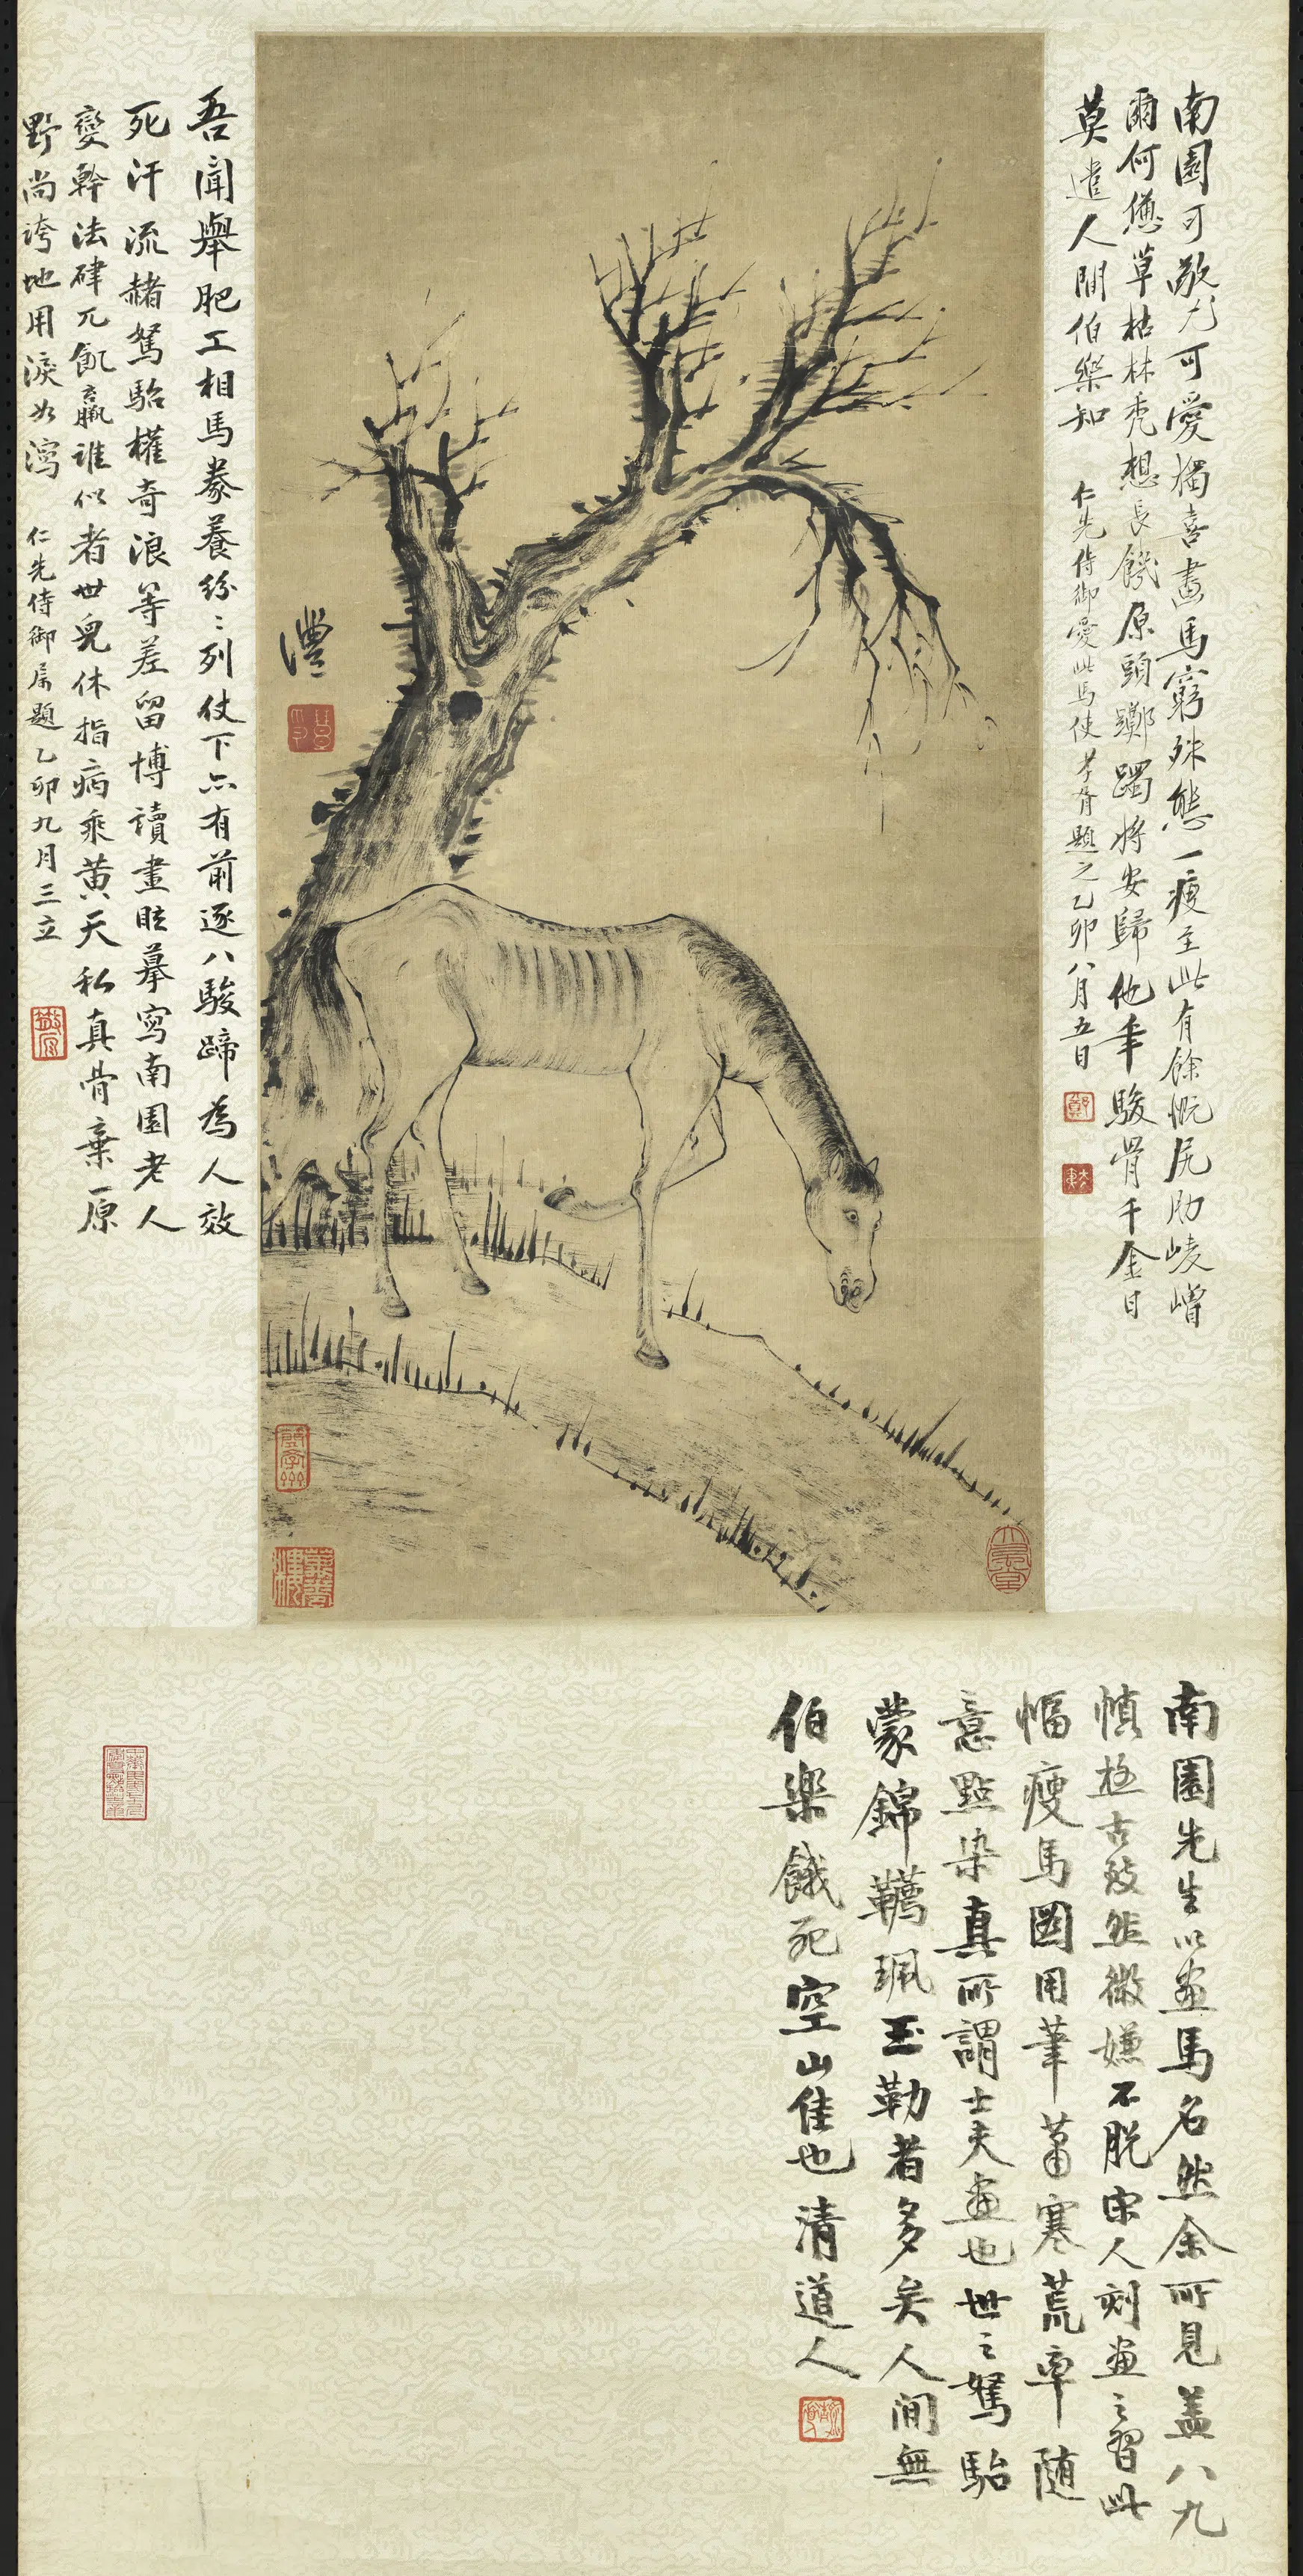 南園可敬尤可愛獨喜畫馬窮殊態一瘦至此有餘慨尻肋崚嶒
爾何憊草枯林禿想長饑原頭躑躅將安歸他年駿骨千金日
莫遣人間伯樂知
仁先侍御愛此馬使孝胥題之乙卯八月五日
鄭
澧
吾聞舉肥工相馬豢養紛〻列仗下亦有前逐八駿蹄為人效
死汗流赭駑駘權奇浪等差留博讀畫眩摹寫南園老人
變幹法硉兀飢羸誰似者世兒休指病乘黃天私真骨棄原
野尚誇地用淚如瀉
仁先侍御屬題乙卯九月三立
南園先生以畫馬名然余所見蓋八九
幀極古發然微嫌不脫宋人刻畫之習此
幅瘦馬圖用筆蕭寒荒率隨
意點染真所謂士夫畫也世之駑駘
蒙錦韉珮玉勒者多矣人間無
伯樂餓死空山隹也清道人